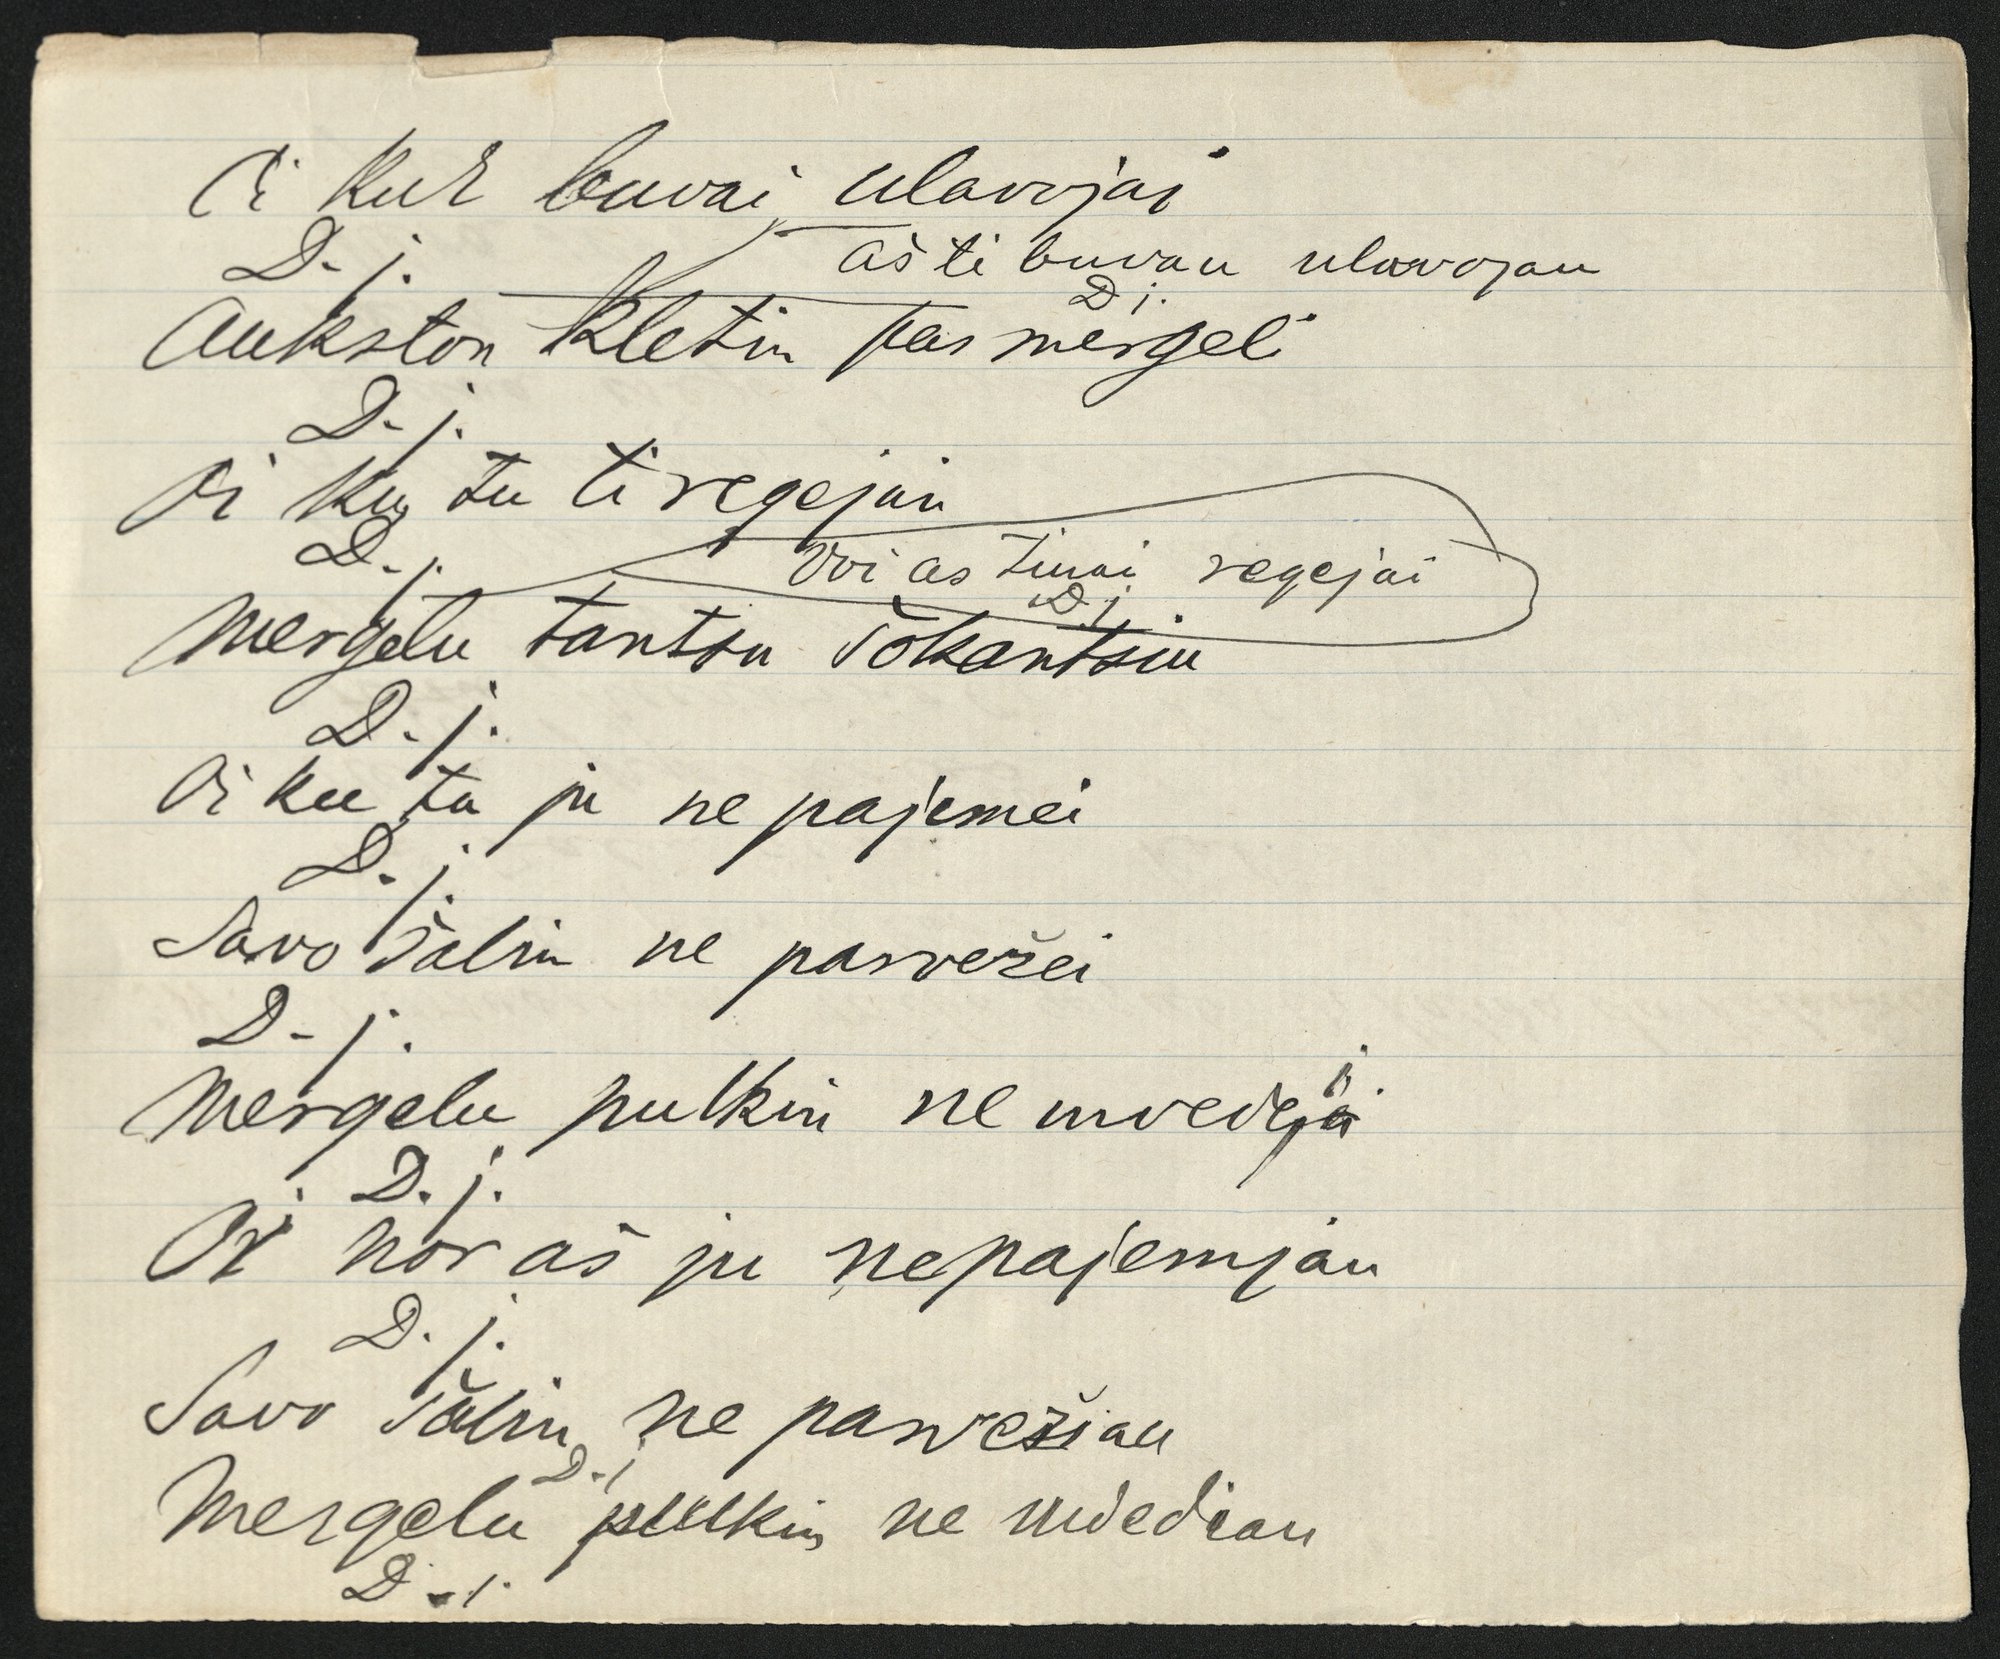 Oi kur buvai ulavojai
D. j.
aš ti buvau ulavojau
D j.
Aukston kletin pas mergeli
D. j.
Oi ku tu ti regejai
D. j.
Ooi as tinai regejai
D. j
Mergelu tantsu šokantsiu
D. j.
Oi ku tu ju ne pajemei
D. j.
Savo šalin ne parvežei
D. j.
Mergelu pulkin ne invedeji
D. j.
Oi nor aš ju nepajemjau
D. j.
Savo šalin ne parvežiau
D. j
Mergelu pulkin ne invediau
D. j.